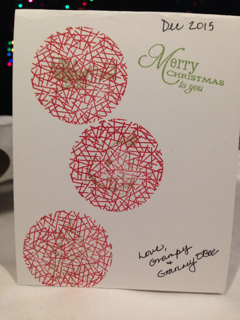 Dec 2015
Merry
CHRISTMAS
to you
Love,
Grampy
&
Granny Dee